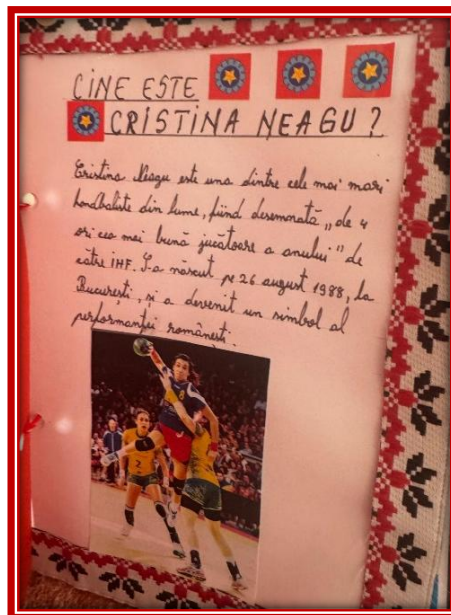 CINE ESTE
CRISTINA NEAGU?
Cristina Neagu este una dintre cele mai mari
handbaliste din lume, fiind desemnată „de 4
ori cea mai bună jucătoare a anului" de
către IHF. S-a născut pe 26 august 1988, la
București, și a devenit un simbol al
performanței românești.